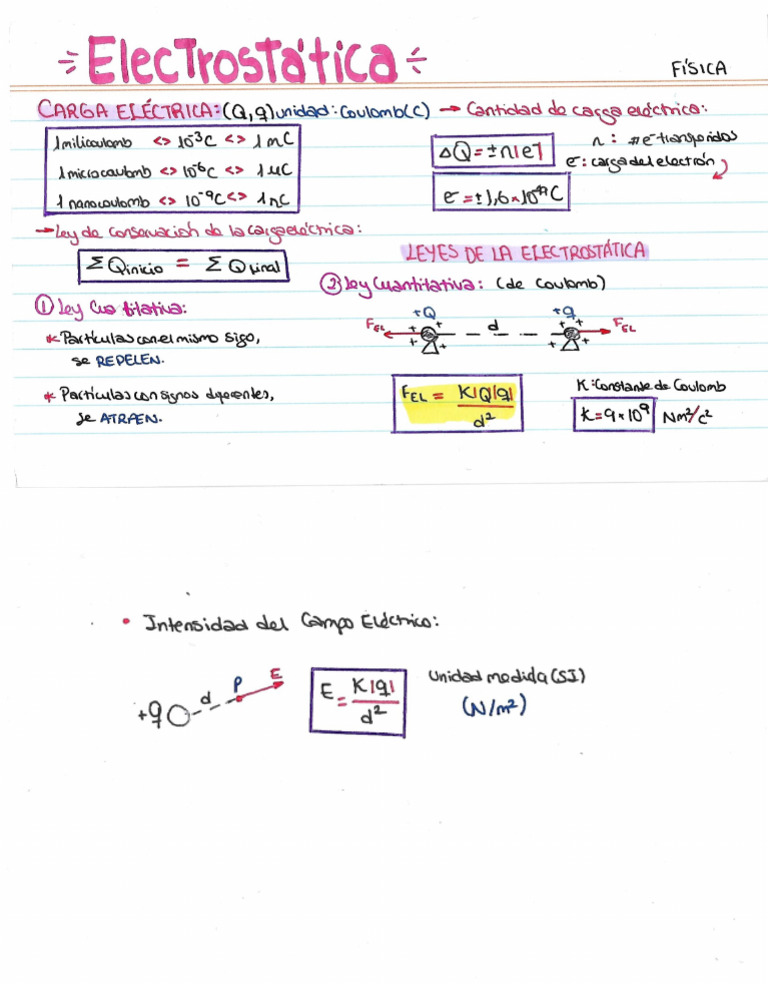 Electrostática
FÍSICA
CARGA ELÉCTRICA: (Q, q) unidad: Coulomb(C) → Cantidad de carga eléctrica:
1 milicoulomb <> 10⁻³C <> 1 mC
1 microcoulomb <> 10⁻⁶C <> 1 μC
1 nanocoulomb <> 10⁻⁹C <> 1 nC
ΔQ = ± n|e⁻|
n: # e⁻ transferidos
e⁻: carga del electrón
e⁻ = ± 1,6 × 10⁻¹⁹ C
→ Ley de conservación de la carga eléctrica:
ΣQinicio = ΣQfinal
LEYES DE LA ELECTROSTÁTICA
① Ley Cualitativa:
* Partículas con el mismo sigo,
se REPELEN.
* Partículas con signos diferentes,
se ATRAEN.
② Ley Cuantitativa: (de Coulomb)
+Q +q
F_EL d F_EL
F_EL = K|Q|q| / d²
K: Constante de Coulomb
K = 9 × 10⁹ Nm²/c²
• Intensidad del Campo Eléctrico:
+q d P E
E = K|q| / d²
Unidad medida (SI)
(N/m²)